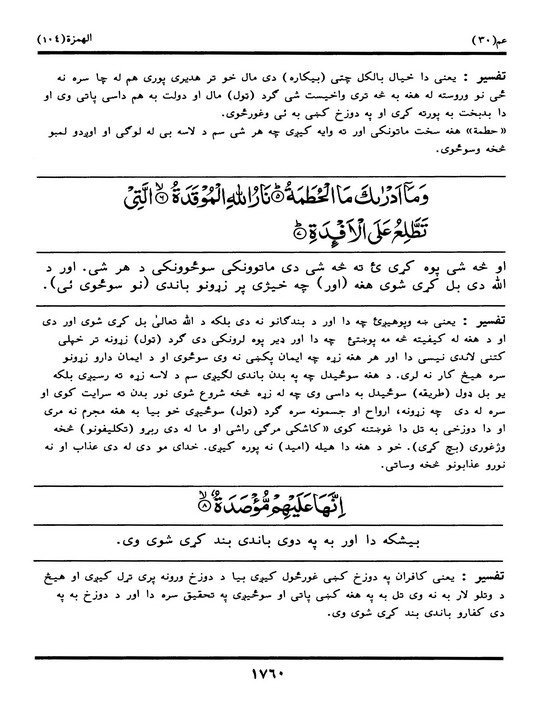 عم(٣٠) الهمزة(١٠٤)
تفسير : يعنی دا خيال بالکل چتی (بيکاره) دی مال خو تر هديری پوری هم له چا سره نه
ځی نو وروسته له هغه به څه تری واخيست شی ګرد (ټول) مال او دولت به هم داسی پاتی وی او
دا بدبخت به پورته کړی او په دوزخ کښی به ئی وغورځوی.
«حطمة» هغه سخت ماتونکی اور ته وايه کيږی چه هر شی سم د لاسه بی له لوګی او اوږدو لمبو
څخه وسوځوی.
وَمَآ اَدْرٰىكَ مَا الْحُطَمَةُ ۝۵ نَارُ اللّٰهِ الْمُوْقَدَةُ ۝۶ الَّتِیْ
تَطَّلِعُ عَلَی الْاَفْـِٕدَةِ ۝۷
او څه شی پوه کړی ئ ته څه شی دی ماتوونکی سوځوونکی د هر شی. اور د
الله دی بل کړی شوی هغه (اور) چه خيژی پر زړونو باندی (نو سوځوی ئی).
تفسير : يعنی ښه وپوهيږئ چه دا اور د بندګانو نه دی بلکه د الله تعالیٰ بل کړی شوی اور دی
او د هغه له کيفيته څه مه پوښتئ چه دا اور ډير پوه لرونکی دی ګرد (ټول) زړونه تر خپلی
کتنی لاندی نيسی دا اور هر هغه زړه چه ايمان پکښی نه وی سوځوی او د ايمان دارو زړونو
سره هيڅ کار نه لری. د هغه سوځيدل چه په بدن باندی لګيږی سم د لاسه زړه ته رسيږی بلکه
يو بل ډول (طريقه) سوځيدل به داسی وی چه له زړه څخه شروع شوی نور بدن ته سرايت کوی او
سره له دی چه زړونه، ارواح او جسمونه سره ګرد (ټول) سوځيږی خو بيا به هغه مجرم نه مری
او دا دوزخی به تل دا غوښتنه کوی «کاشکی مرګی راشی او ما له دی ربړو (تکليفونو) څخه
وژغوری (بچ کړی). خو د هغه دا هيله (اميد) نه پوره کيږی. خدای مو دی له دی عذاب او نه
نورو عذابونو څخه وساتی.
اِنَّهَا عَلَيْهِمْ مُّؤْصَدَةٌ ۝۸
بيشکه دا اور به په دوی باندی بند کړی شوی وی.
تفسير : يعنی کافران په دوزخ کښی غورځول کيږی بيا د دوزخ ورونه پری تړل کيږی او هيڅ
د وتلو لار به نه وی تل به په هغه کښی پاتی او سوځيږی په تحقيق سره دا اور د دوزخ به په
دی کفارو باندی بند کړی شوی وی.
١٧٦٠